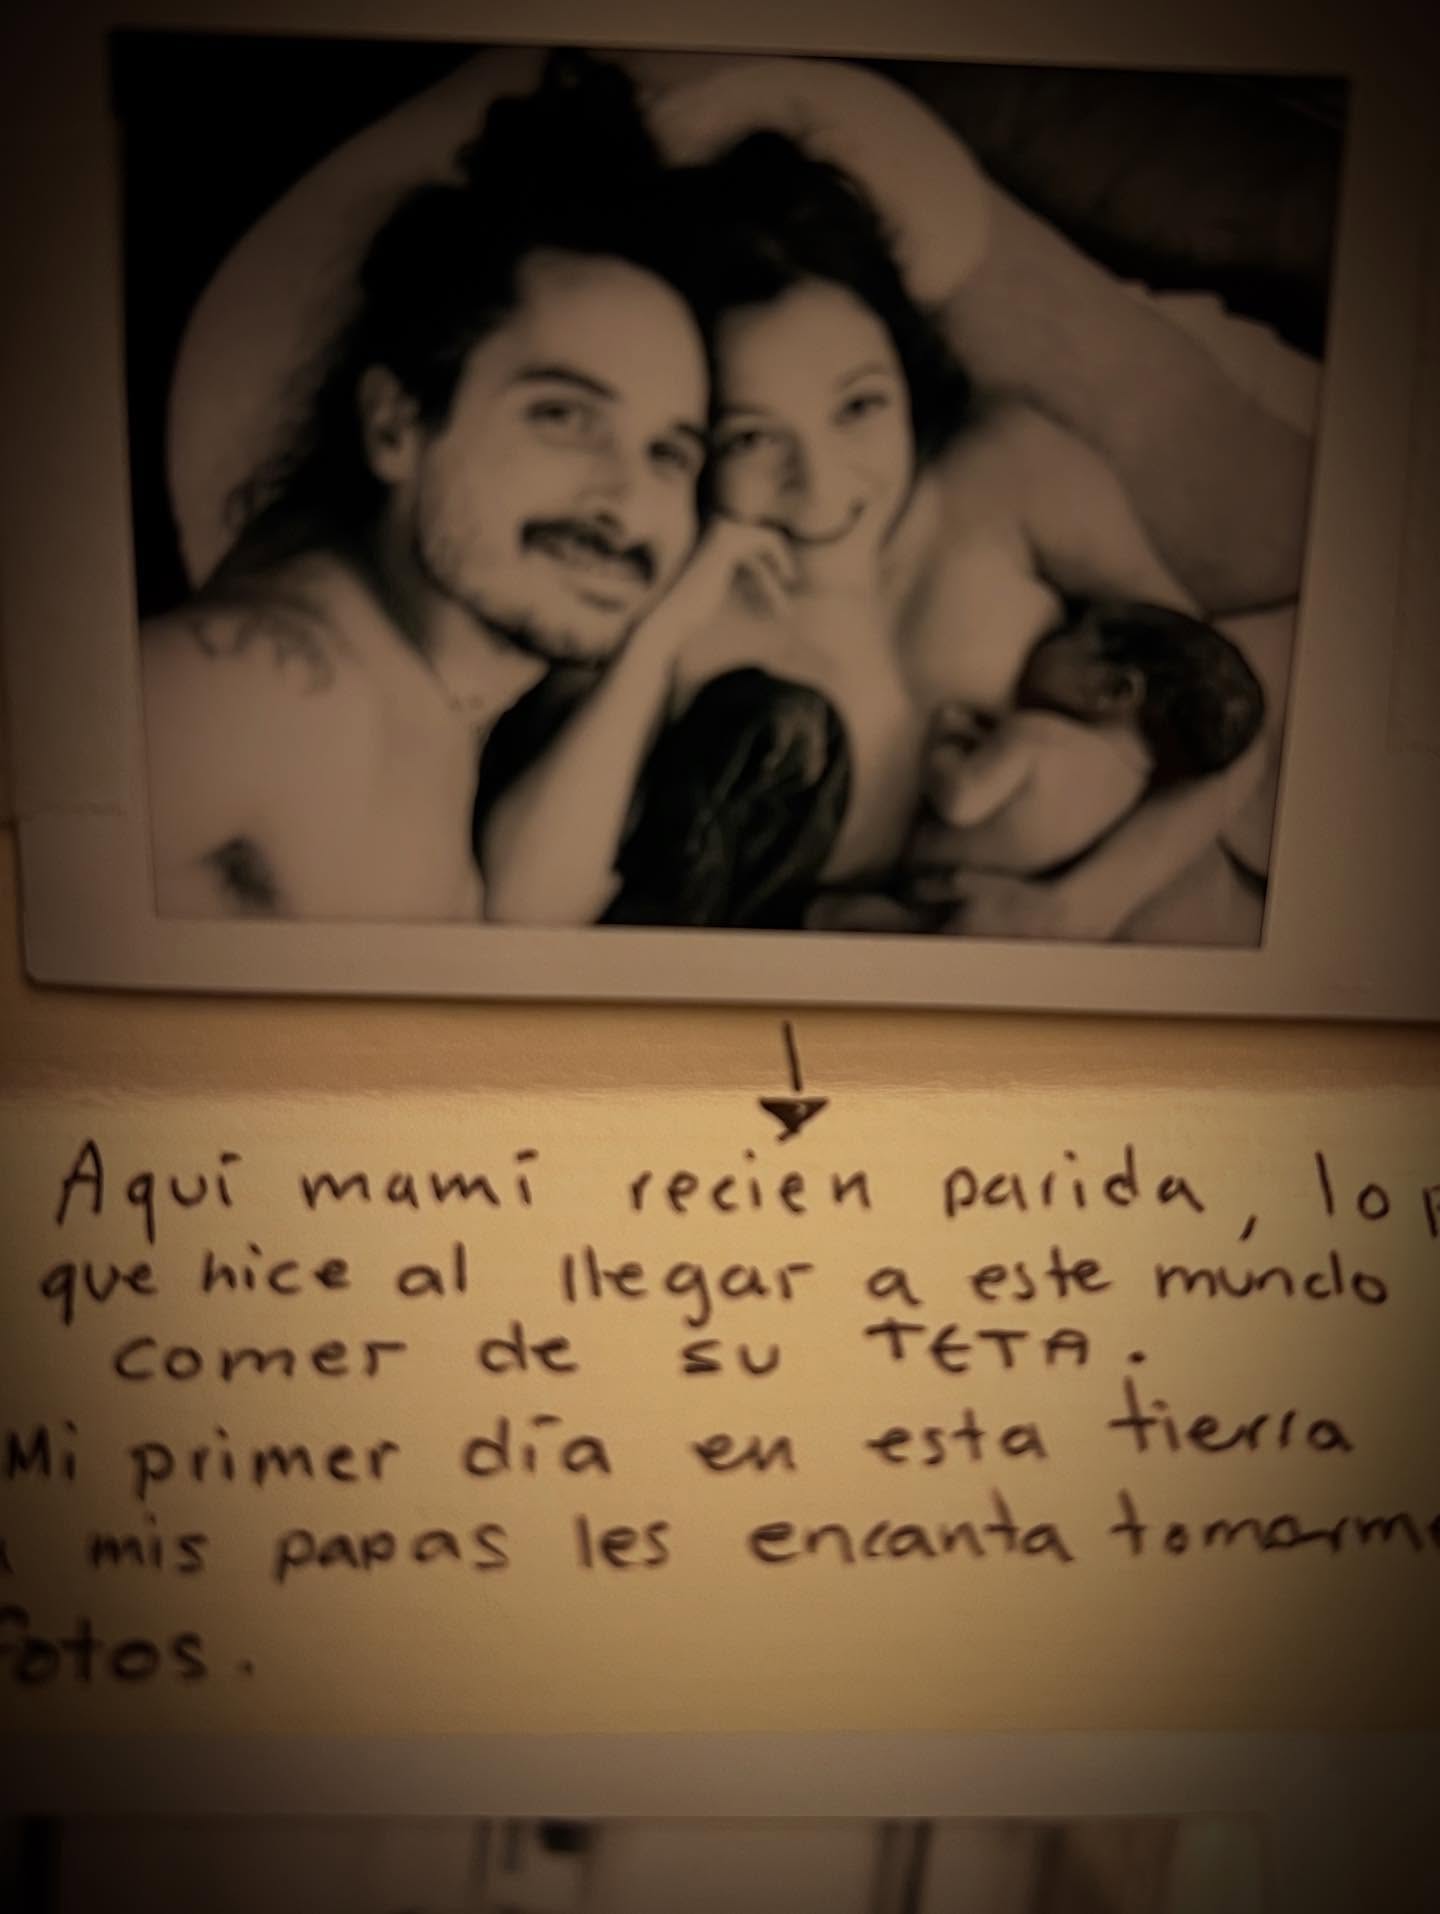 Aquí mamí recien parida, lo p
que hice al llegar a este mundo
comer de su TETA.
Mi primer día en esta tierra
a mis papas les encanta tomarme
fotos.